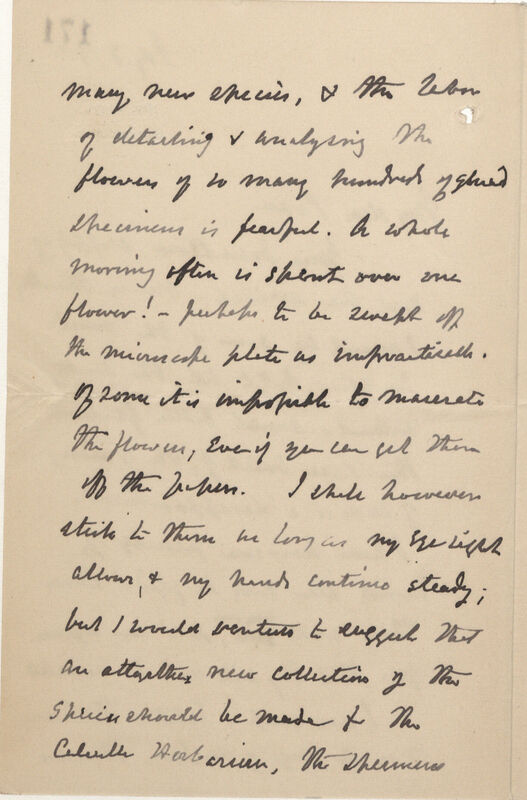 171
many new species, & the labor
of detaching & analysing the
flowers of so many hundreds of glued
specimens is fearful. A whole
morning often is spent over one
flower! – perhaps to be swept off
the microscope plate as impracticable.
Of some it is impossible to macerate
the flowers, even if you can get them
off the paper. I shall however
stick to them as long as my eye sight
allows, & my hands continue steady;
but I would venture to suggest that
an altogether new collection of the
species should be made for the
Calcutta Herbarium, the specimens